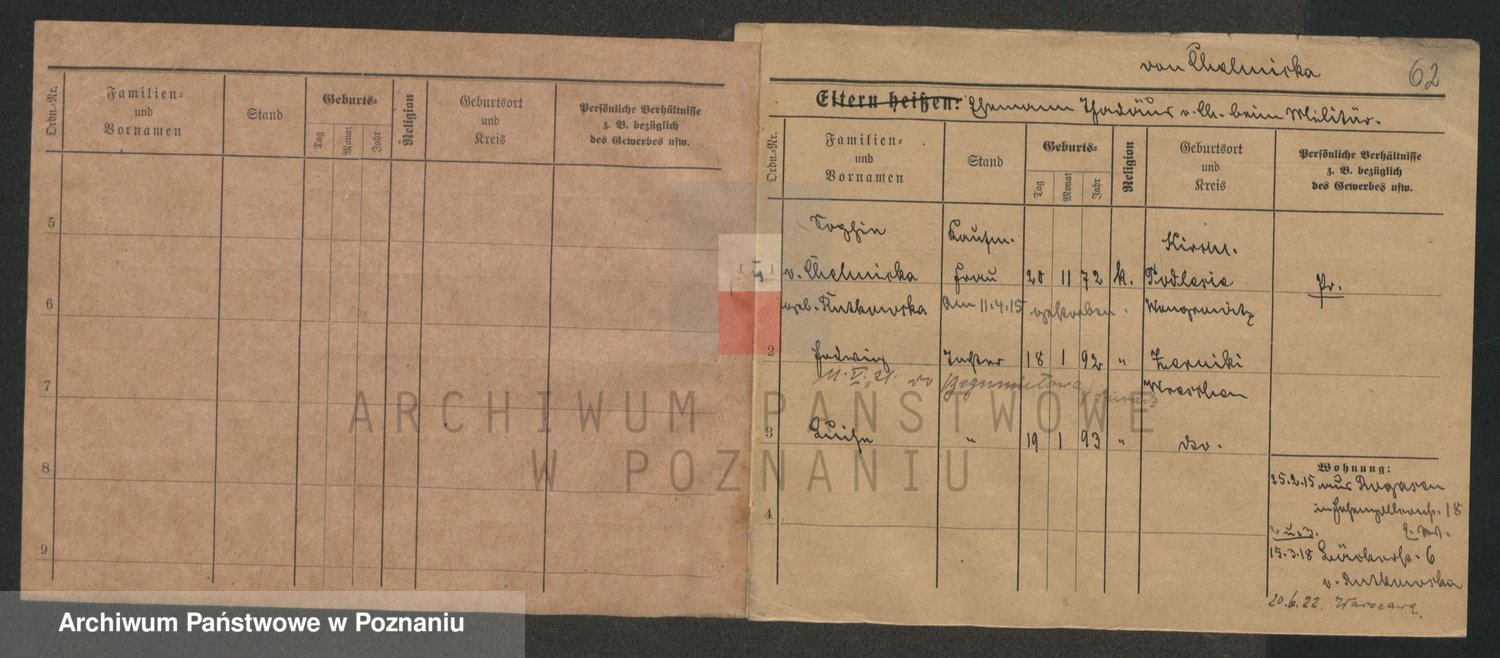 Ordn.-Nr.
Familien-
und
Vornamen
Stand
Geburts-
Tag
Monat
Jahr
Religion
Geburtsort
und
Kreis
Persönliche Verhältnisse
z. B. bezüglich
des Gewerbes usw.
5
6
7
8
9
von Chelmicka
62
Eltern heißen: Ehemann Thadäus v. Ch. beim Militär.
Ordn.-Nr.
Familien-
und
Vornamen
Stand
Geburts-
Tag
Monat
Jahr
Religion
Geburtsort
und
Kreis
Persönliche Verhältnisse
z. B. bezüglich
des Gewerbes usw.
Sophie
Kaufm.
v. Chelmicka Frau 20 11 72 k. Podlesie Pr.
geb. Rutkowska Am 11.4.15 gestorben. Wongrowitz
2 Hedwig Tochter 18 1 92 " Zerniki
11.V.21. do Bogumiłowa
Wreschen
3 Luise " 19 1 93 " do.
4
Wohnung:
25.2.15 aus Rogasen
in Hohenzollernstr. 18
2 u. 3.
15.3.18 Bäckerstr. 6
v. Rutkowska
20.6.22. Warszawa
ARCHIWUM PAŃSTWOWE
W POZNANIU
Archiwum Państwowe w Poznaniu